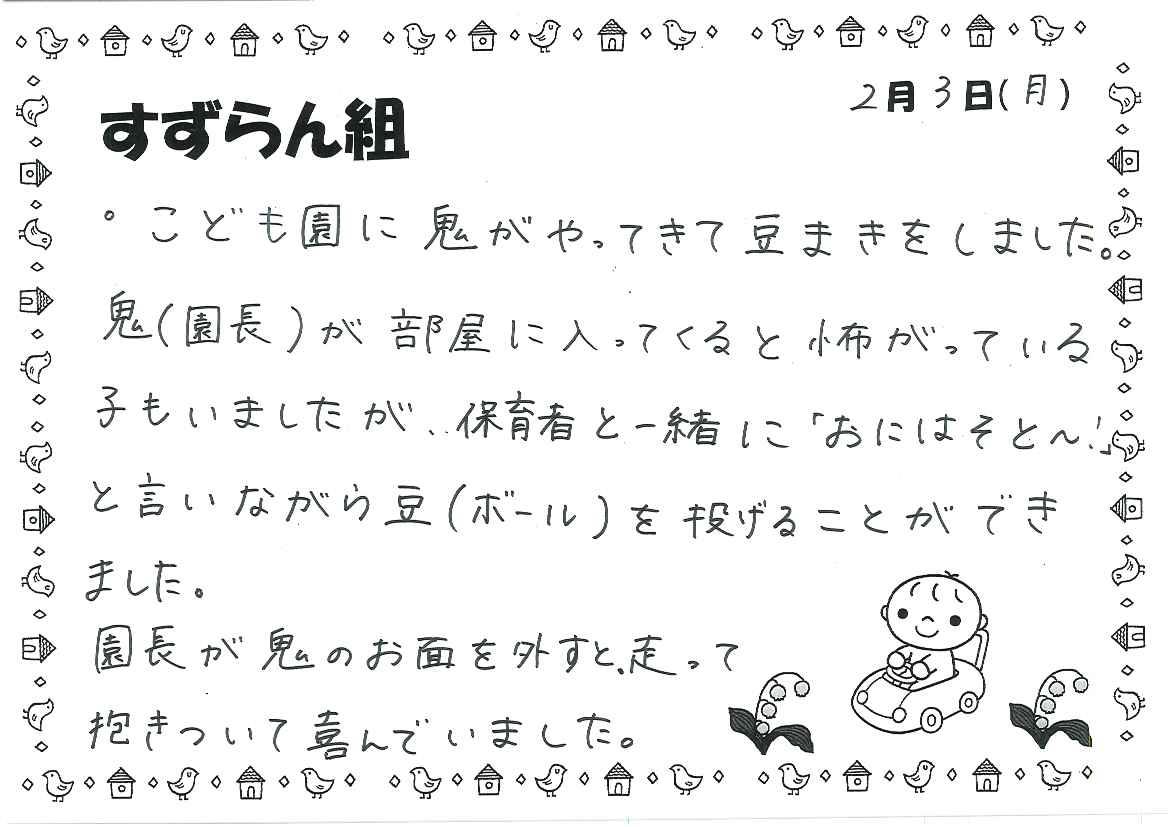 2月3日(月)
すずらん組
。こども園に鬼がやってきて豆まきをしました。
鬼(園長)が部屋に入ってくると怖がっている
子もいましたが、保育者と一緒に「おにはそと～!」
と言いながら豆(ボール)を投げることができ
ました。
園長が鬼のお面を外すと、走って
抱きついて喜んでいました。